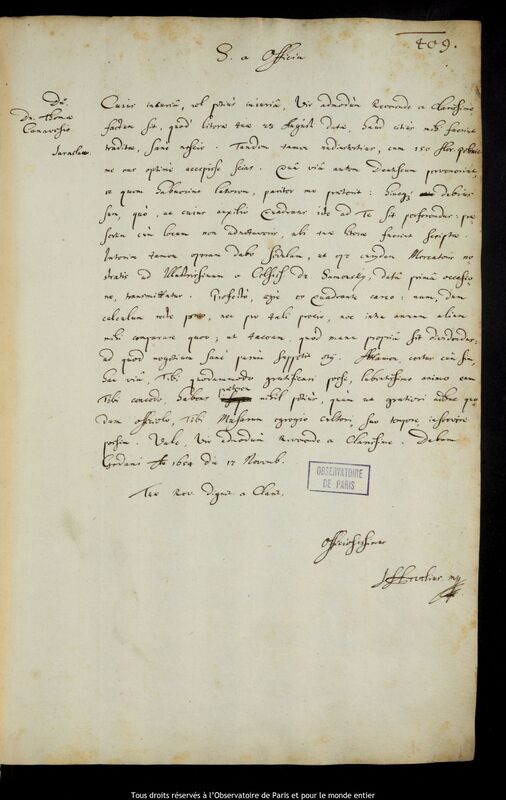 409.
S. a Officia
Dn.
Dn. Thomæ
Canavesio
Jaroslav.
Cujus incuriâ, vel potius injuriâ, Vir admodùm Reverende ac Clarissime
factum sit, quod literæ tuæ 28 Augusti datæ, haud citius mihi fuerint
traditæ, sanè nescio. Tandem tamen redintegratas, cum 150 flor.
me eas optimè accepisse scias. Quâ viâ autem Dantiscum pervenerint,
ac quem habuerint latorem, pariter me præterit: hincq;
sum, quò, ac cujus auxilio Quadrans iste ad Te sit perferendus: præ
sertim cùm locum non adnotaveris, ubi tuæ literæ fuerint scriptæ.
Interim tamen operam dabo sedulam, ut ope cujusdam Mercatoris no
stratis ad Illustrissimum a Celsiss. Dn. Zamoisky, datâ primâ occasio
ne, transmittatur. Profectò, ægrè eo Quadrante careo: nam, dum
calculum rectè pono, nec pro tali precio, nec intra annum alium
mihi comparare queo; ut taceam, quod manu propriâ sit dividendus:
ad quod negotium sanè parùm suppetit otij. Attamen, certus cùm sim,
hac viâ, Tibi quodammodo gratificari posse, lubentissimo animo eum
Tibi concedo, habens prætereà nihil potius, quam ut gratiori adhuc quo
dam officiolo, Tibi Musarum egregio cultori, suo tempore, inservire
possim. Vale, Vir admodùm Reverende ac Clarissime. Dabam
Gedani Ao 1654 die 17 Novemb.
Tuæ Rev. Dignit. ac Clarit.
OBSERVATOIRE
DE PARIS
Officiosissimus
JHevelius. mp
Tous droits réservés à l'Observatoire de Paris et pour le monde entier